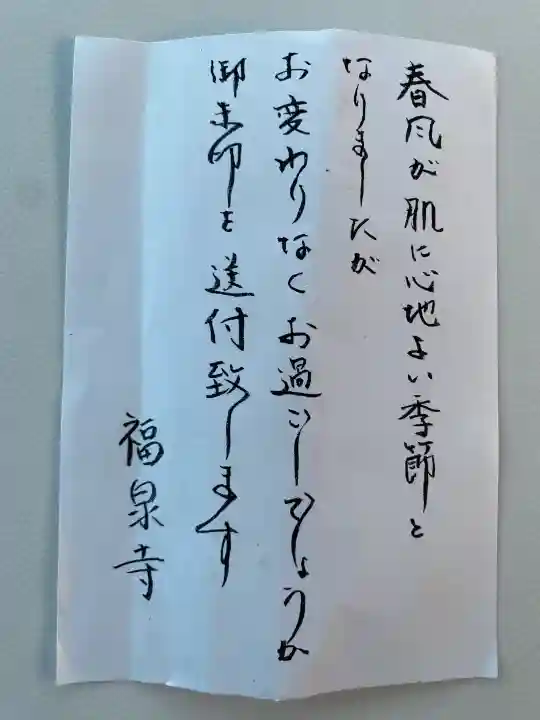 春風が肌に心地よい季節と
なりましたが
お変わりなくお過ごしでしょうか
御朱印を送付致します
福泉寺